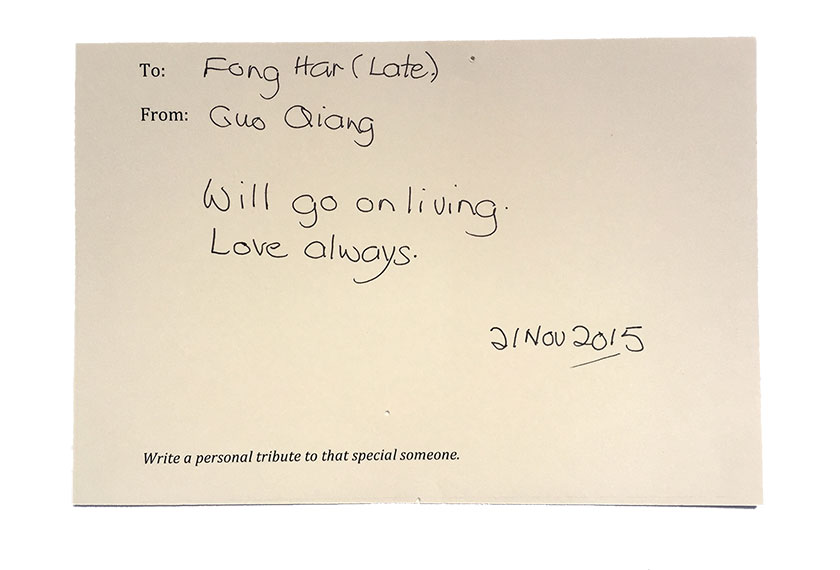 To: Fong Har (Late.)
From: Guo Qiang
Will go on living.
Love always.
21 Nov 2015
Write a personal tribute to that special someone.